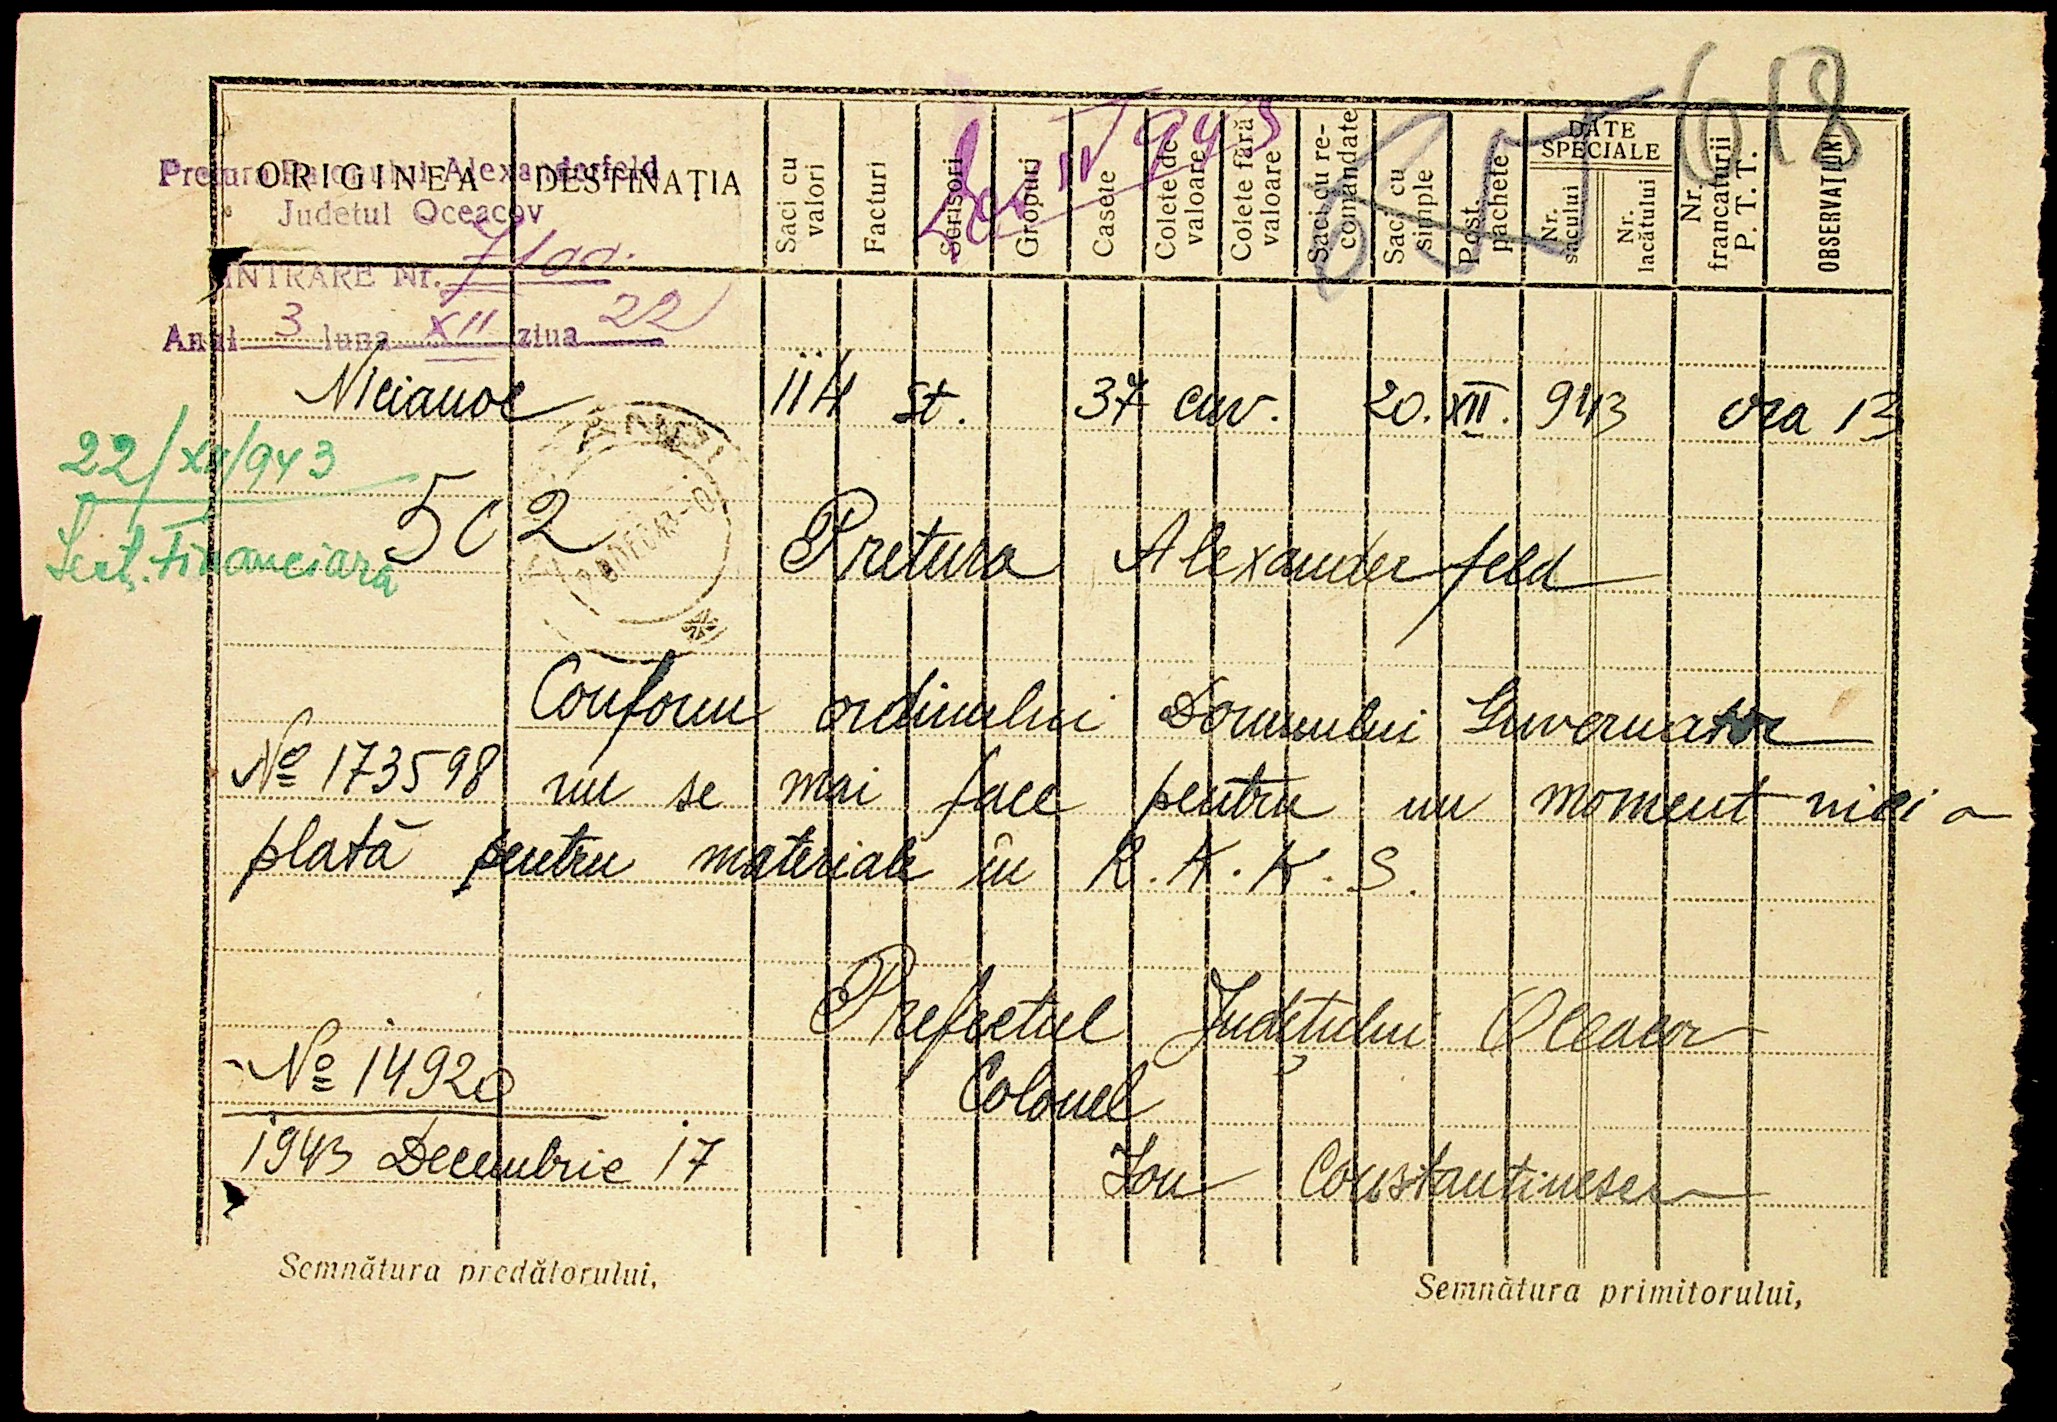 618
Pretura Raionului Alexanderfeld
Judetul Oceacov
INTRARE Nr. 7100
Anul 3 luna XII ziua 22
ORIGINEA
DESTINAȚIA
Saci cu valori
Facturi
Scrisori
Gropuri
Casete
Colete de valoare
Colete fără valoare
Saci cu re-comandate
Saci cu simple
Post. pachete
DATE SPECIALE
Nr. sacului
Nr. lacătului
Nr. francaturii P. T. T.
OBSERVAȚIUNI
114 st. 37 cuv. 20. XII. 943 ora 13
22/XII/943
Sect. Financiara
502 Pretura Alexanderfeld
Conform ordinului Domnului Guvernator
№ 173598 nu se mai face pentru un moment nici o
plată pentru materiale în R.K.K.S.
Prefectul Județului Oceacov
№ 14920 Colonel
1943 Decembrie 17 Ion Constantinescu
Semnătura predătorului,
Semnătura primitorului,